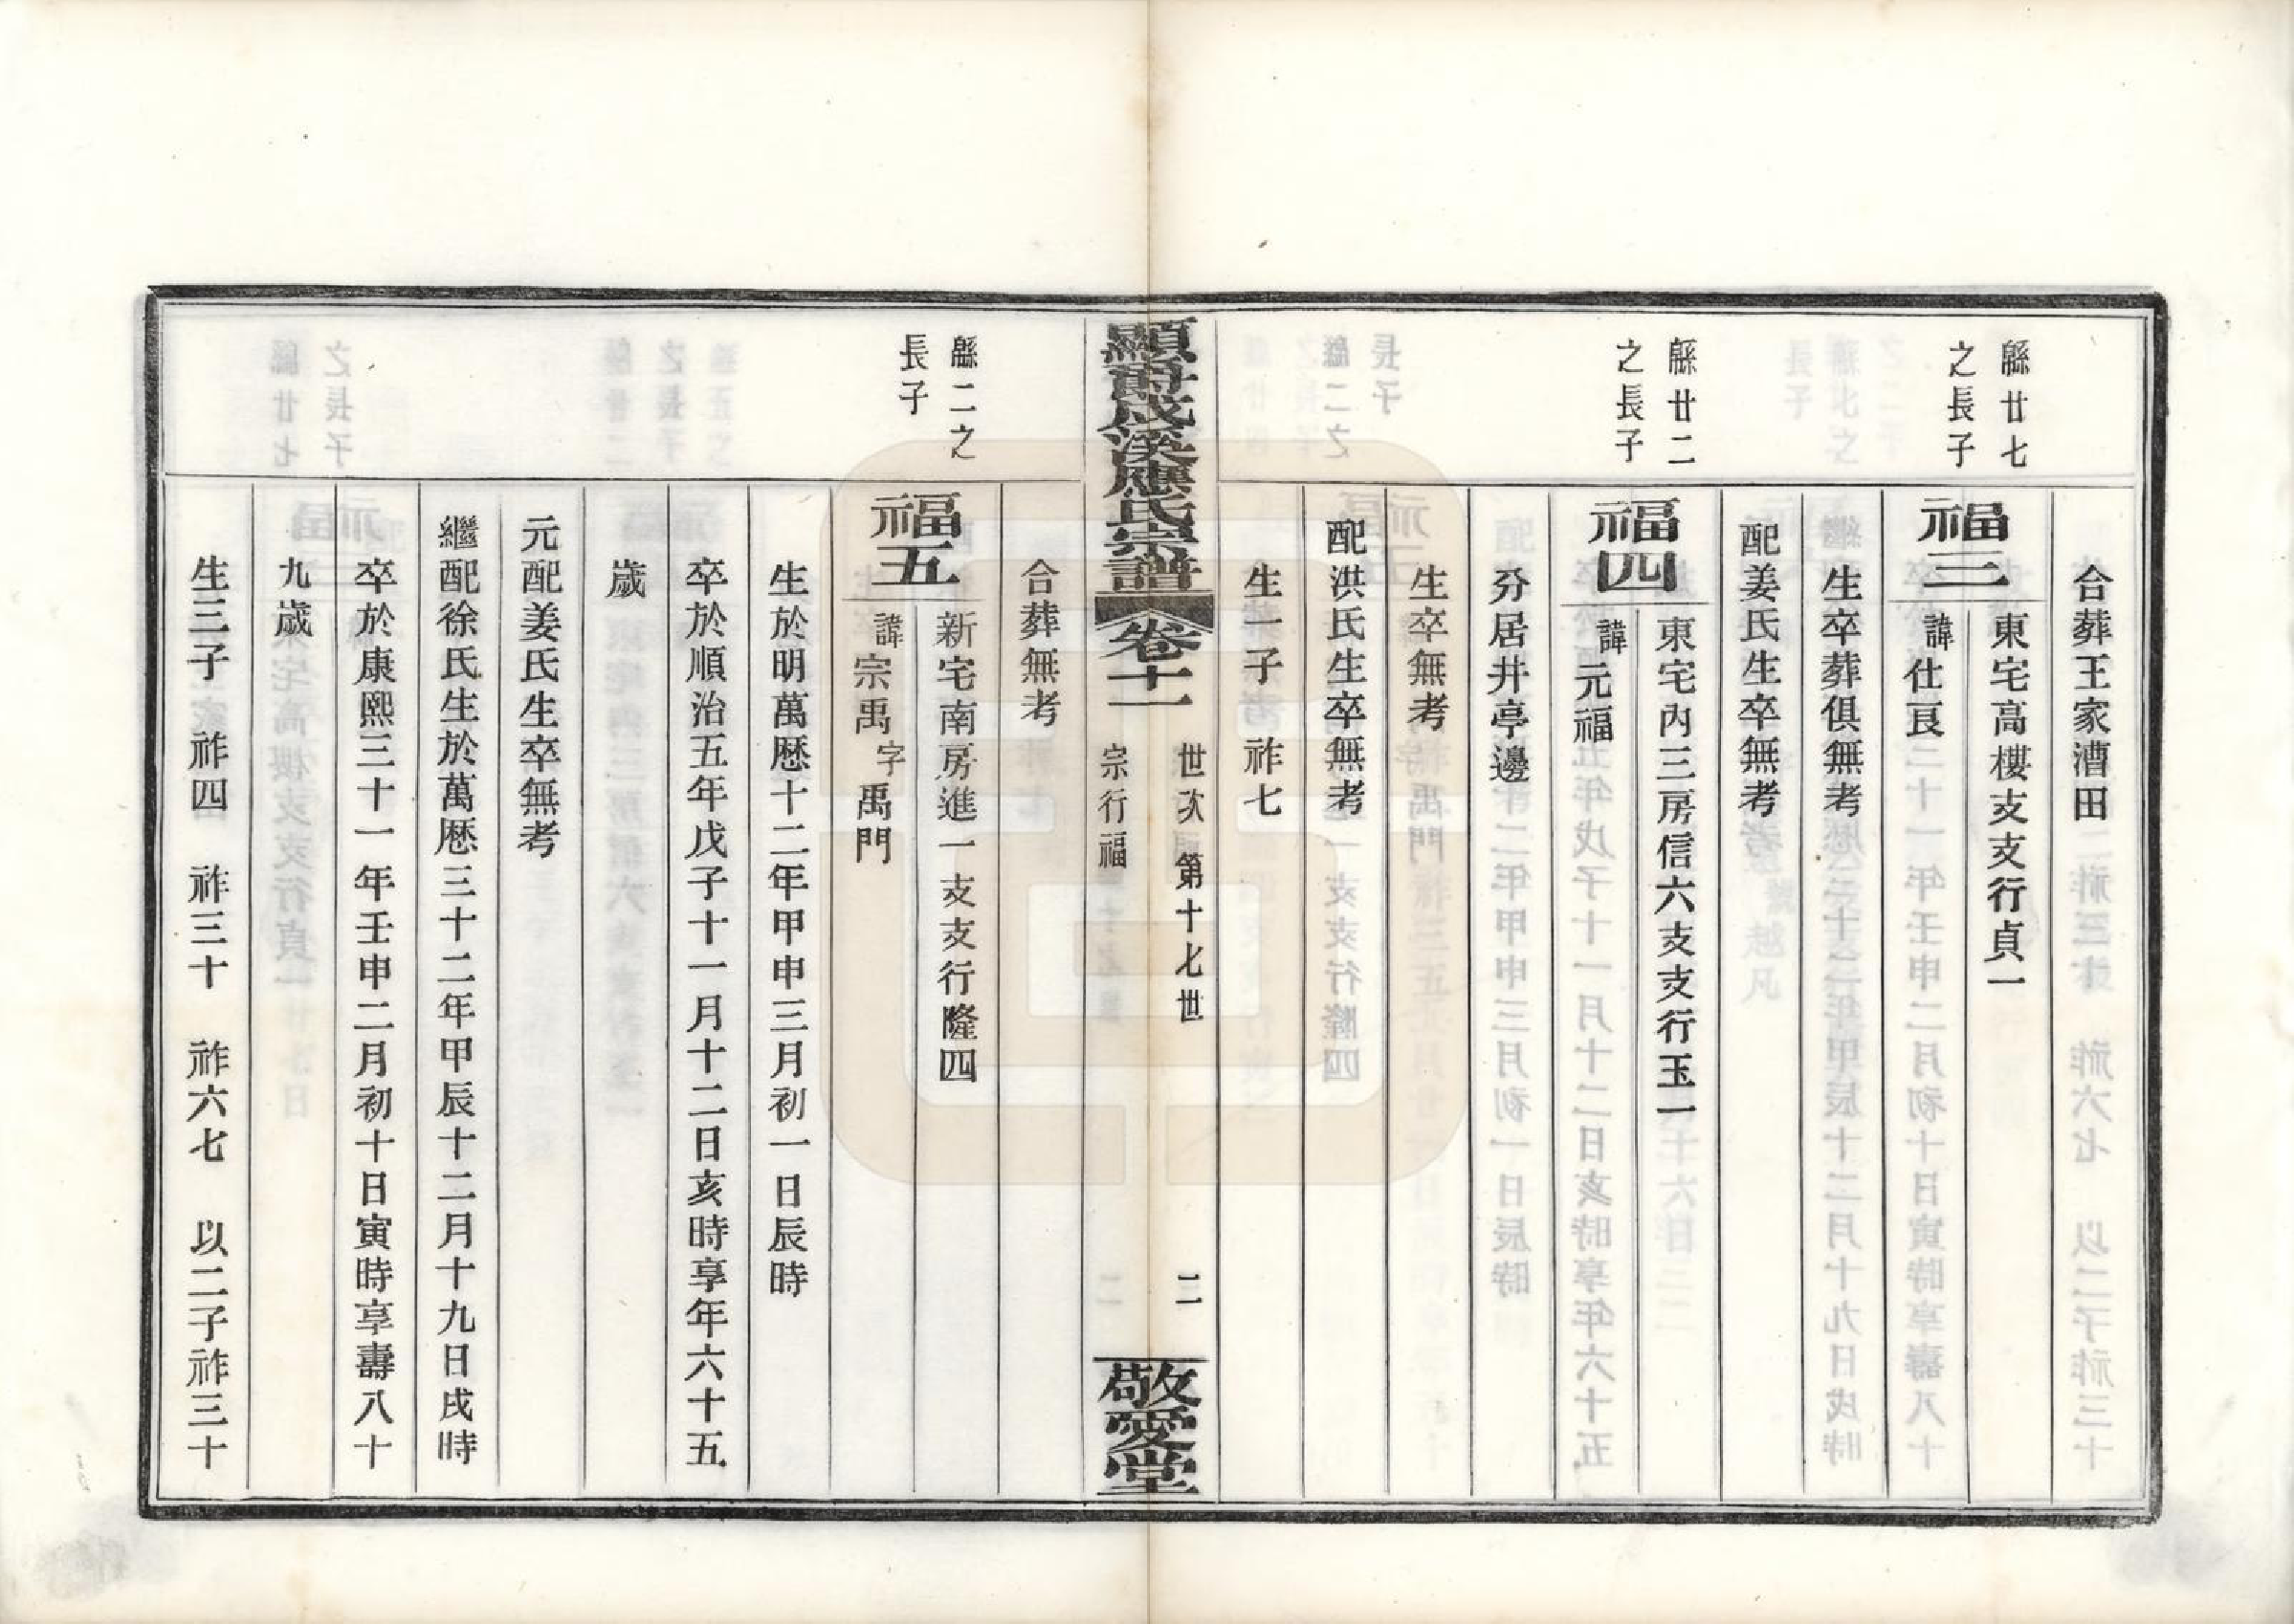 合葬王家漕田
緜廿七
之長子
福三
東宅高樓支支行貞一
諱仕良
生卒葬俱無考
配姜氏生卒無考
緜廿二
之長子
福四
東宅內三房信六支支行玉一
諱元福
分居井亭邊
生卒無考
配洪氏生卒無考
生一子 祚七
顯爵成溪應氏宗譜
卷十一
世次 第十七世
宗行福
二
敬愛堂
合葬無考
緜二之
長子
福五
新宅南房進一支支行隆四
諱宗禹 字禹門
生於明萬歷十二年甲申三月初一日辰時
卒於順治五年戊子十一月十二日亥時享年六十五
歲
元配姜氏生卒無考
繼配徐氏生於萬歷三十二年甲辰十二月十九日戌時
卒於康熙三十一年壬申二月初十日寅時享壽八十
九歲
生三子 祚四 祚三十 祚六七 以二子祚三十